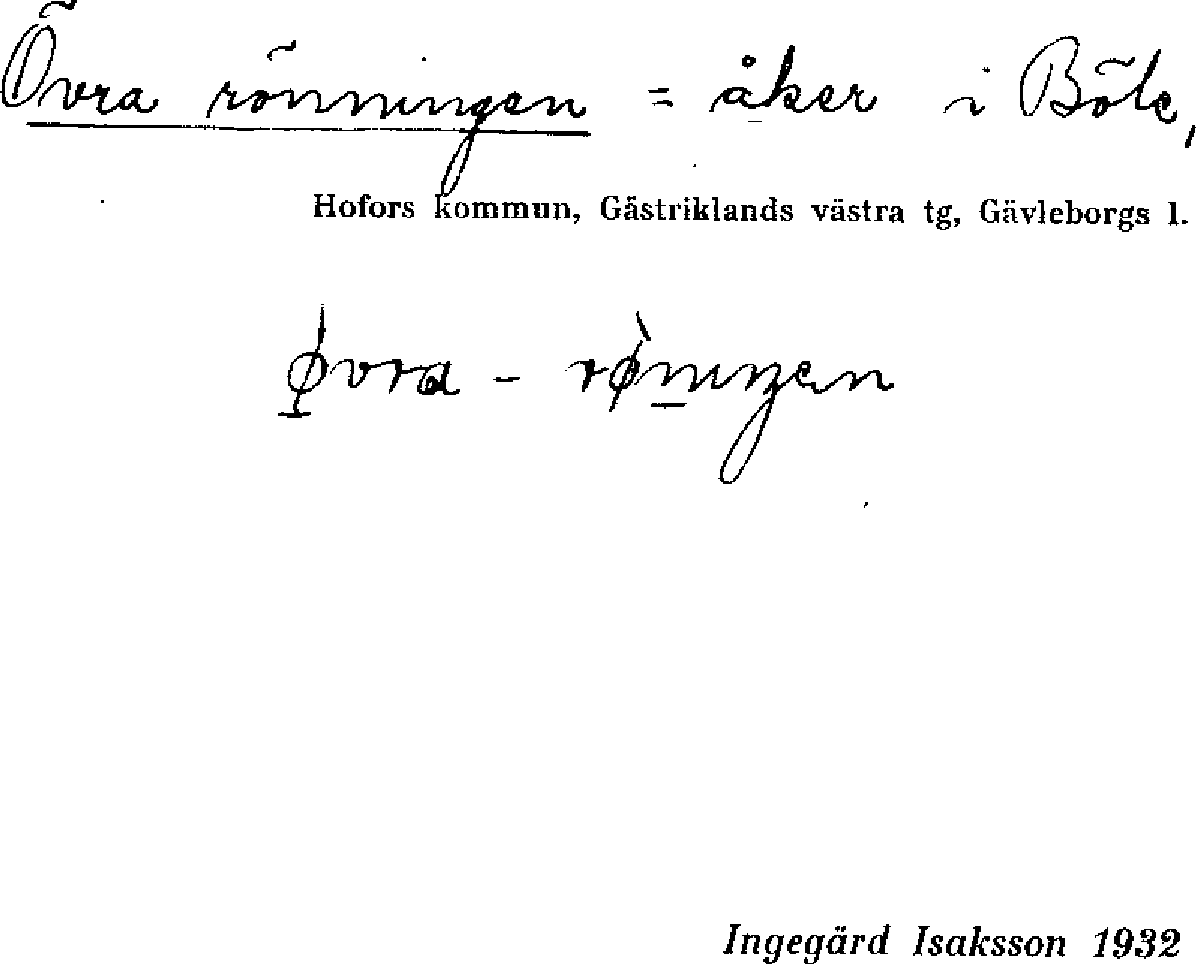 Övra rönningen = åker i Böle,
Hofors kommun, Gästriklands västra tg, Gävleborgs l.
øvra - røniŋen
Ingegärd Isaksson 1932